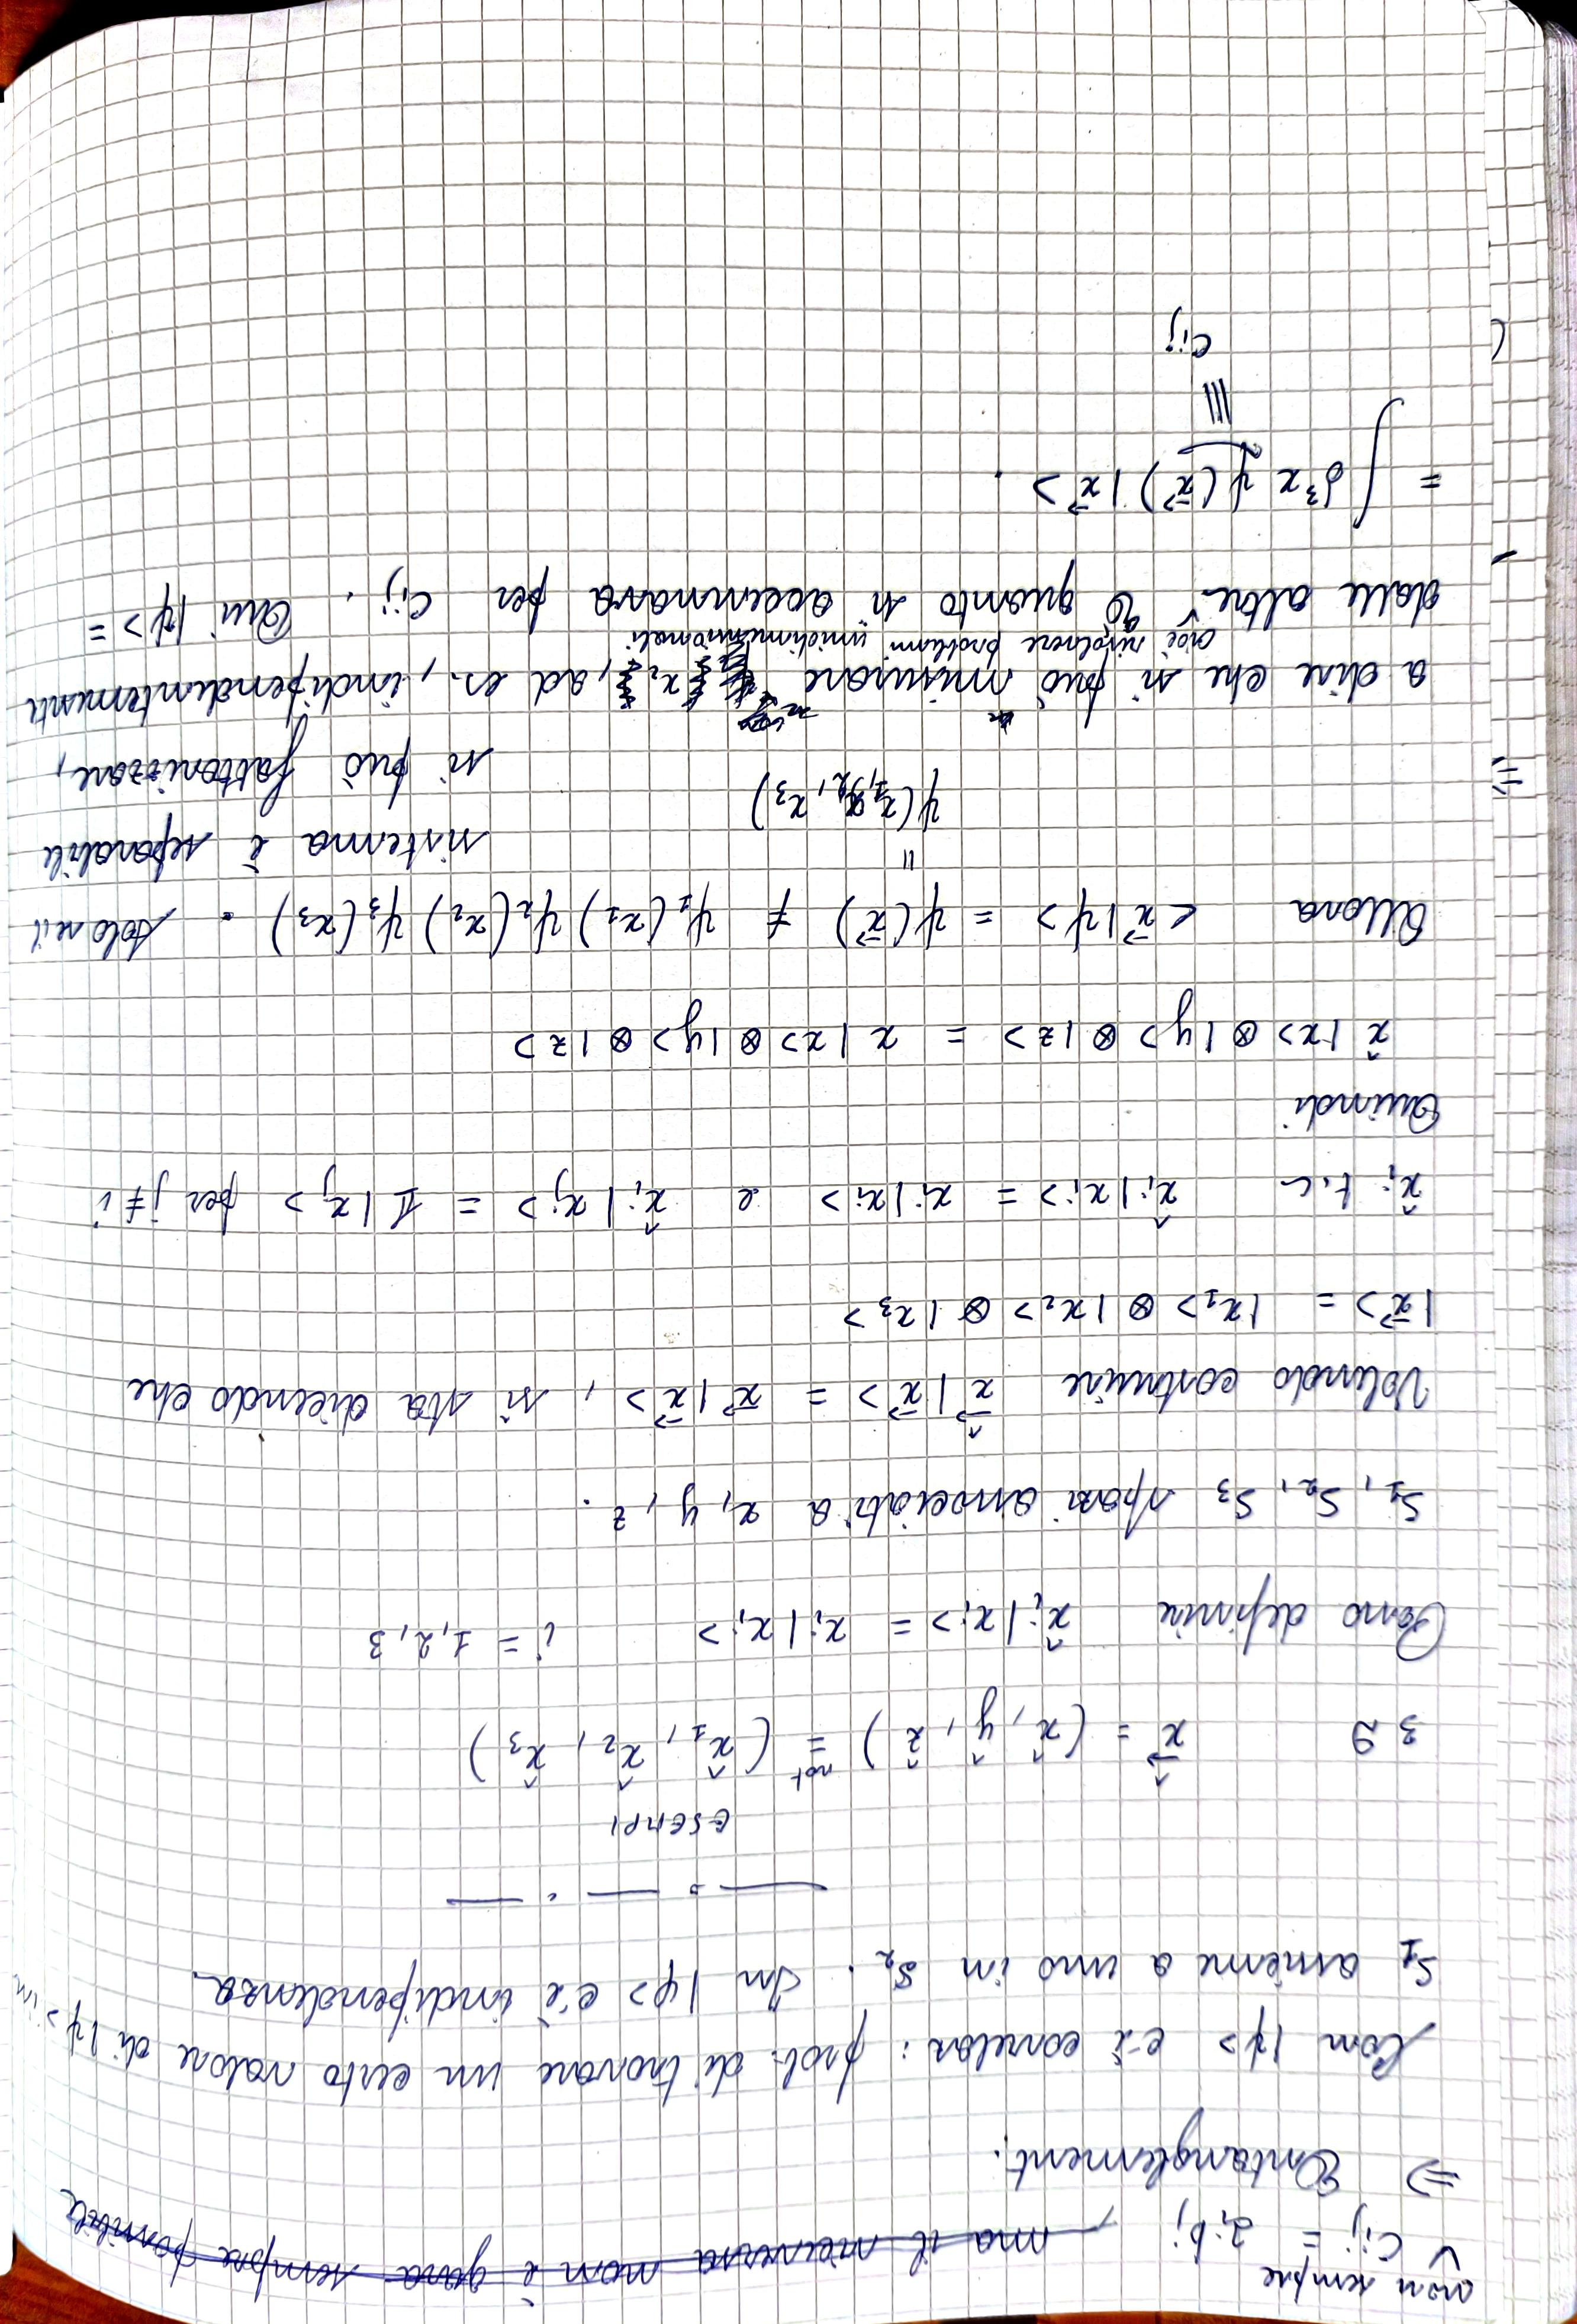 non sempre
c_ij = a_i b_j , ma il viceversa non è sempre possibile
⇒ Entanglement.
Con |ψ> c'è correlaz: prob. di trovare un certo valore di |ψ> in
S_1 assieme a uno in S_2. In |φ> c'è indipendenza.
ESEMPI
3D x̂⃗ = (x̂, ŷ, ẑ) =^not (x̂_1, x̂_2, x̂_3)
Posso definire x̂_i |x_i> = x_i |x_i> i = 1, 2, 3
S_1, S_2, S_3 spazi associati a x, y, z.
Volendo costruire x̂⃗ |x⃗> = x⃗ |x⃗>, si sta dicendo che
|x⃗> = |x_1> ⊗ |x_2> ⊗ |x_3>
x̂_i t.c. x̂_i |x_i> = x_i |x_i> e x̂_i |x_j> = 1 |x_j> per j ≠ i
Quindi
x̂ |x> ⊗ |y> ⊗ |z> = x |x> ⊗ |y> ⊗ |z>
Allora <x⃗|ψ> = ψ(x⃗) ≠ ψ_1(x_1) ψ_2(x_2) ψ_3(x_3). Solo se il
=
sistema è separabile
ψ(x_1, x_2, x_3)
si può fattorizzare,
a dire che si può misurare x, ad es., indipendentemente
cioè risolvere problemi unidimensionali
dalle altre. È quanto si accennava per c_ij. Qui |ψ> =
= ∫ d³x ψ(x⃗) |x⃗>.
|||
c_ij